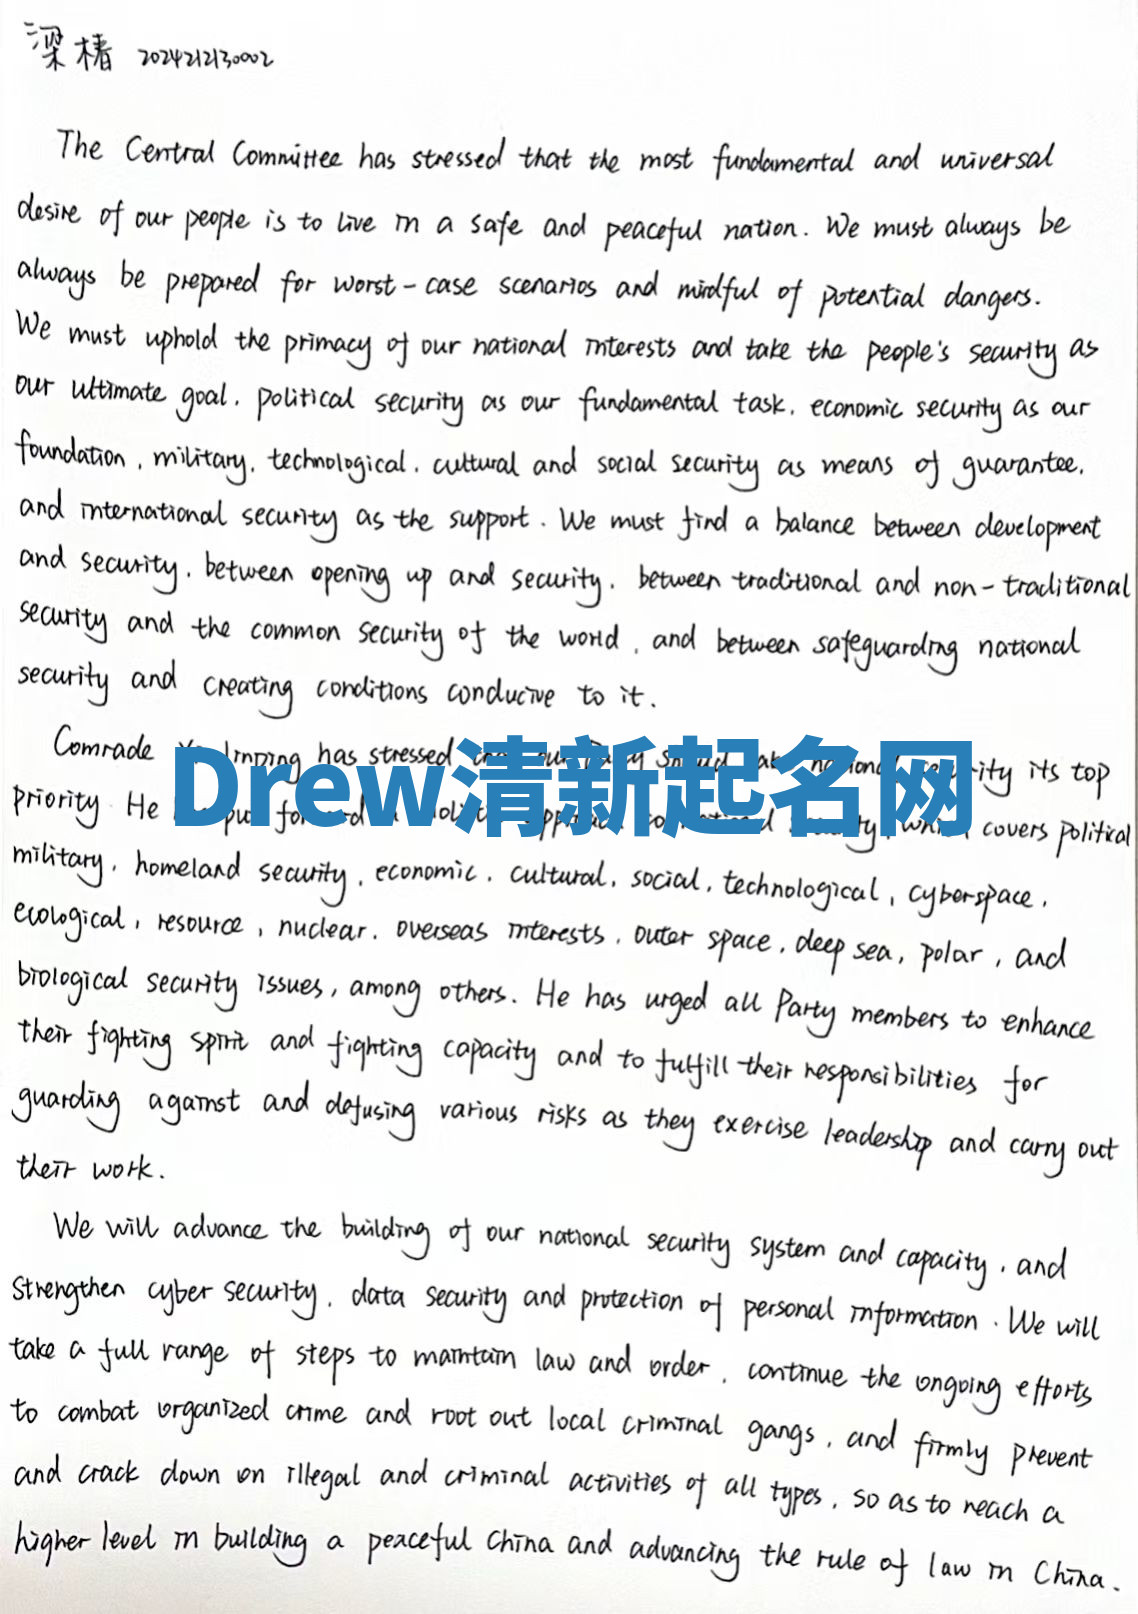 梁椿 2024212130002
The Central Committee has stressed that the most fundamental and universal
desire of our people is to live in a safe and peaceful nation. We must always be
always be prepared for worst-case scenarios and mindful of potential dangers.
We must uphold the primacy of our national interests and take the people's security as
our ultimate goal, political security as our fundamental task, economic security as our
foundation, military, technological, cultural and social security as means of guarantee,
and international security as the support. We must find a balance between development
and security, between opening up and security, between traditional and non-traditional
security and the common security of the world, and between safeguarding national
security and creating conditions conducive to it.
Comrade has stressed its top
priority. He covers political
military, homeland security, economic, cultural, social, technological, cyberspace,
ecological, resource, nuclear, overseas interests, outer space, deep sea, polar, and
biological security issues, among others. He has urged all Party members to enhance
their fighting spirit and fighting capacity and to fulfill their responsibilities for
guarding against and defusing various risks as they exercise leadership and carry out
their work.
We will advance the building of our national security system and capacity, and
strengthen cyber security, data security and protection of personal information. We will
take a full range of steps to maintain law and order, continue the ongoing efforts
to combat organized crime and root out local criminal gangs, and firmly prevent
and crack down on illegal and criminal activities of all types, so as to reach a
higher level in building a peaceful China and advancing the rule of law in China.
Drew清新起名网